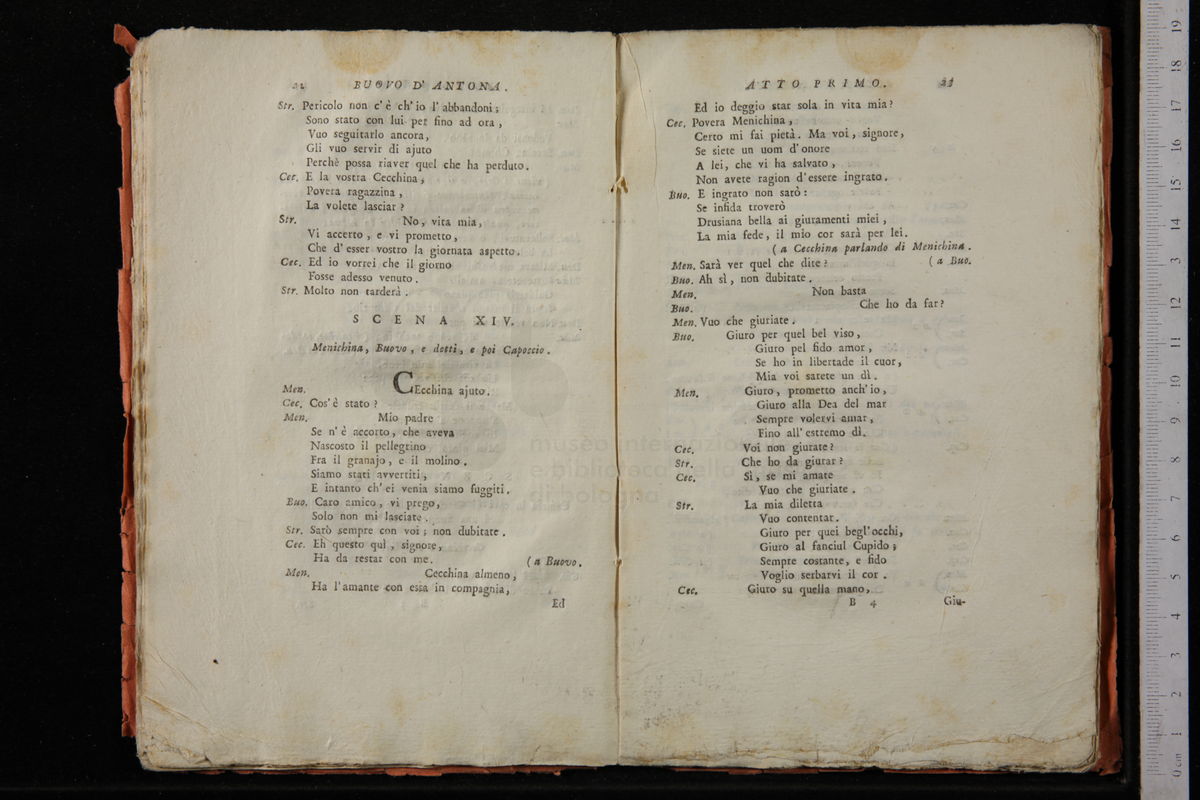 22 BUOVO D' ANTONA.
Str. Pericolo non c'è ch'io l'abbandoni;
Sono stato con lui per fino ad ora,
Vuo seguitarlo ancora,
Gli vuo servir di ajuto
Perchè possa riaver quel che ha perduto.
Cec. E la vostra Cecchina,
Povera ragazzina,
La volete lasciar?
Str. No, vita mia,
Vi accerto, e vi prometto,
Che d'esser vostro la giornata aspetto.
Cec. Ed io vorrei che il giorno
Fosse adesso venuto.
Str. Molto non tarderà.
SCENA XIV.
Menichina, Buovo, e dotti, e poi Capoccio.
Men. CEcchina ajuto.
Cec. Cos'è stato?
Men. Mio padre
Se n'è accorto, che aveva
Nascosto il pellegrino
Fra il granajo, e il molino.
Siamo stati avvertiti,
E intanto ch'ei venia siamo fuggiti.
Buo. Caro amico, vi prego,
Solo non mi lasciate.
Str. Sarò sempre con voi; non dubitate.
Cec. Eh questo quì, signore,
Ha da restar con me. (a Buovo.
Men. Cecchina almeno,
Ha l'amante con essa in compagnia,
Ed
ATTO PRIMO.
Ed io deggio star sola in vita mia?
Cec. Povera Menichina,
Certo mi fai pietà. Ma voi, signore,
Se siete un uom d'onore
A lei, che vi ha salvato,
Non avete ragion d'essere ingrato.
Buo. E ingrato non sarò:
Se infida troverò
Drusiana bella ai giuramenti miei,
La mia fede, il mio cor sarà per lei.
(a Cecchina parlando di Menichina.
Men. Sarà ver quel che dite? (a Buo.
Buo. Ah sì, non dubitate.
Men. Non basta
Buo. Che ho da far?
Men. Vuo che giuriate.
Buo. Giuro per quel bel viso,
Giuro pel fido amor,
Se ho in libertade il cuor,
Mia voi sarete un dì.
Men. Giuro, prometto anch'io,
Giuro alla Dea del mar
Sempre volervi amar,
Fino all'estremo dì.
Cec. Voi non giurate?
Str. Che ho da giurar?
Cec. Sì, se mi amate
Vuo che giuriate.
Str. La mia diletta
Vuo contentar.
Giuro per quei begl'occhi,
Giuro al fanciul Cupido;
Sempre costante, e fido
Voglio serbarvi il cor.
Cec. Giuro su quella mano,
B 4 Giu-